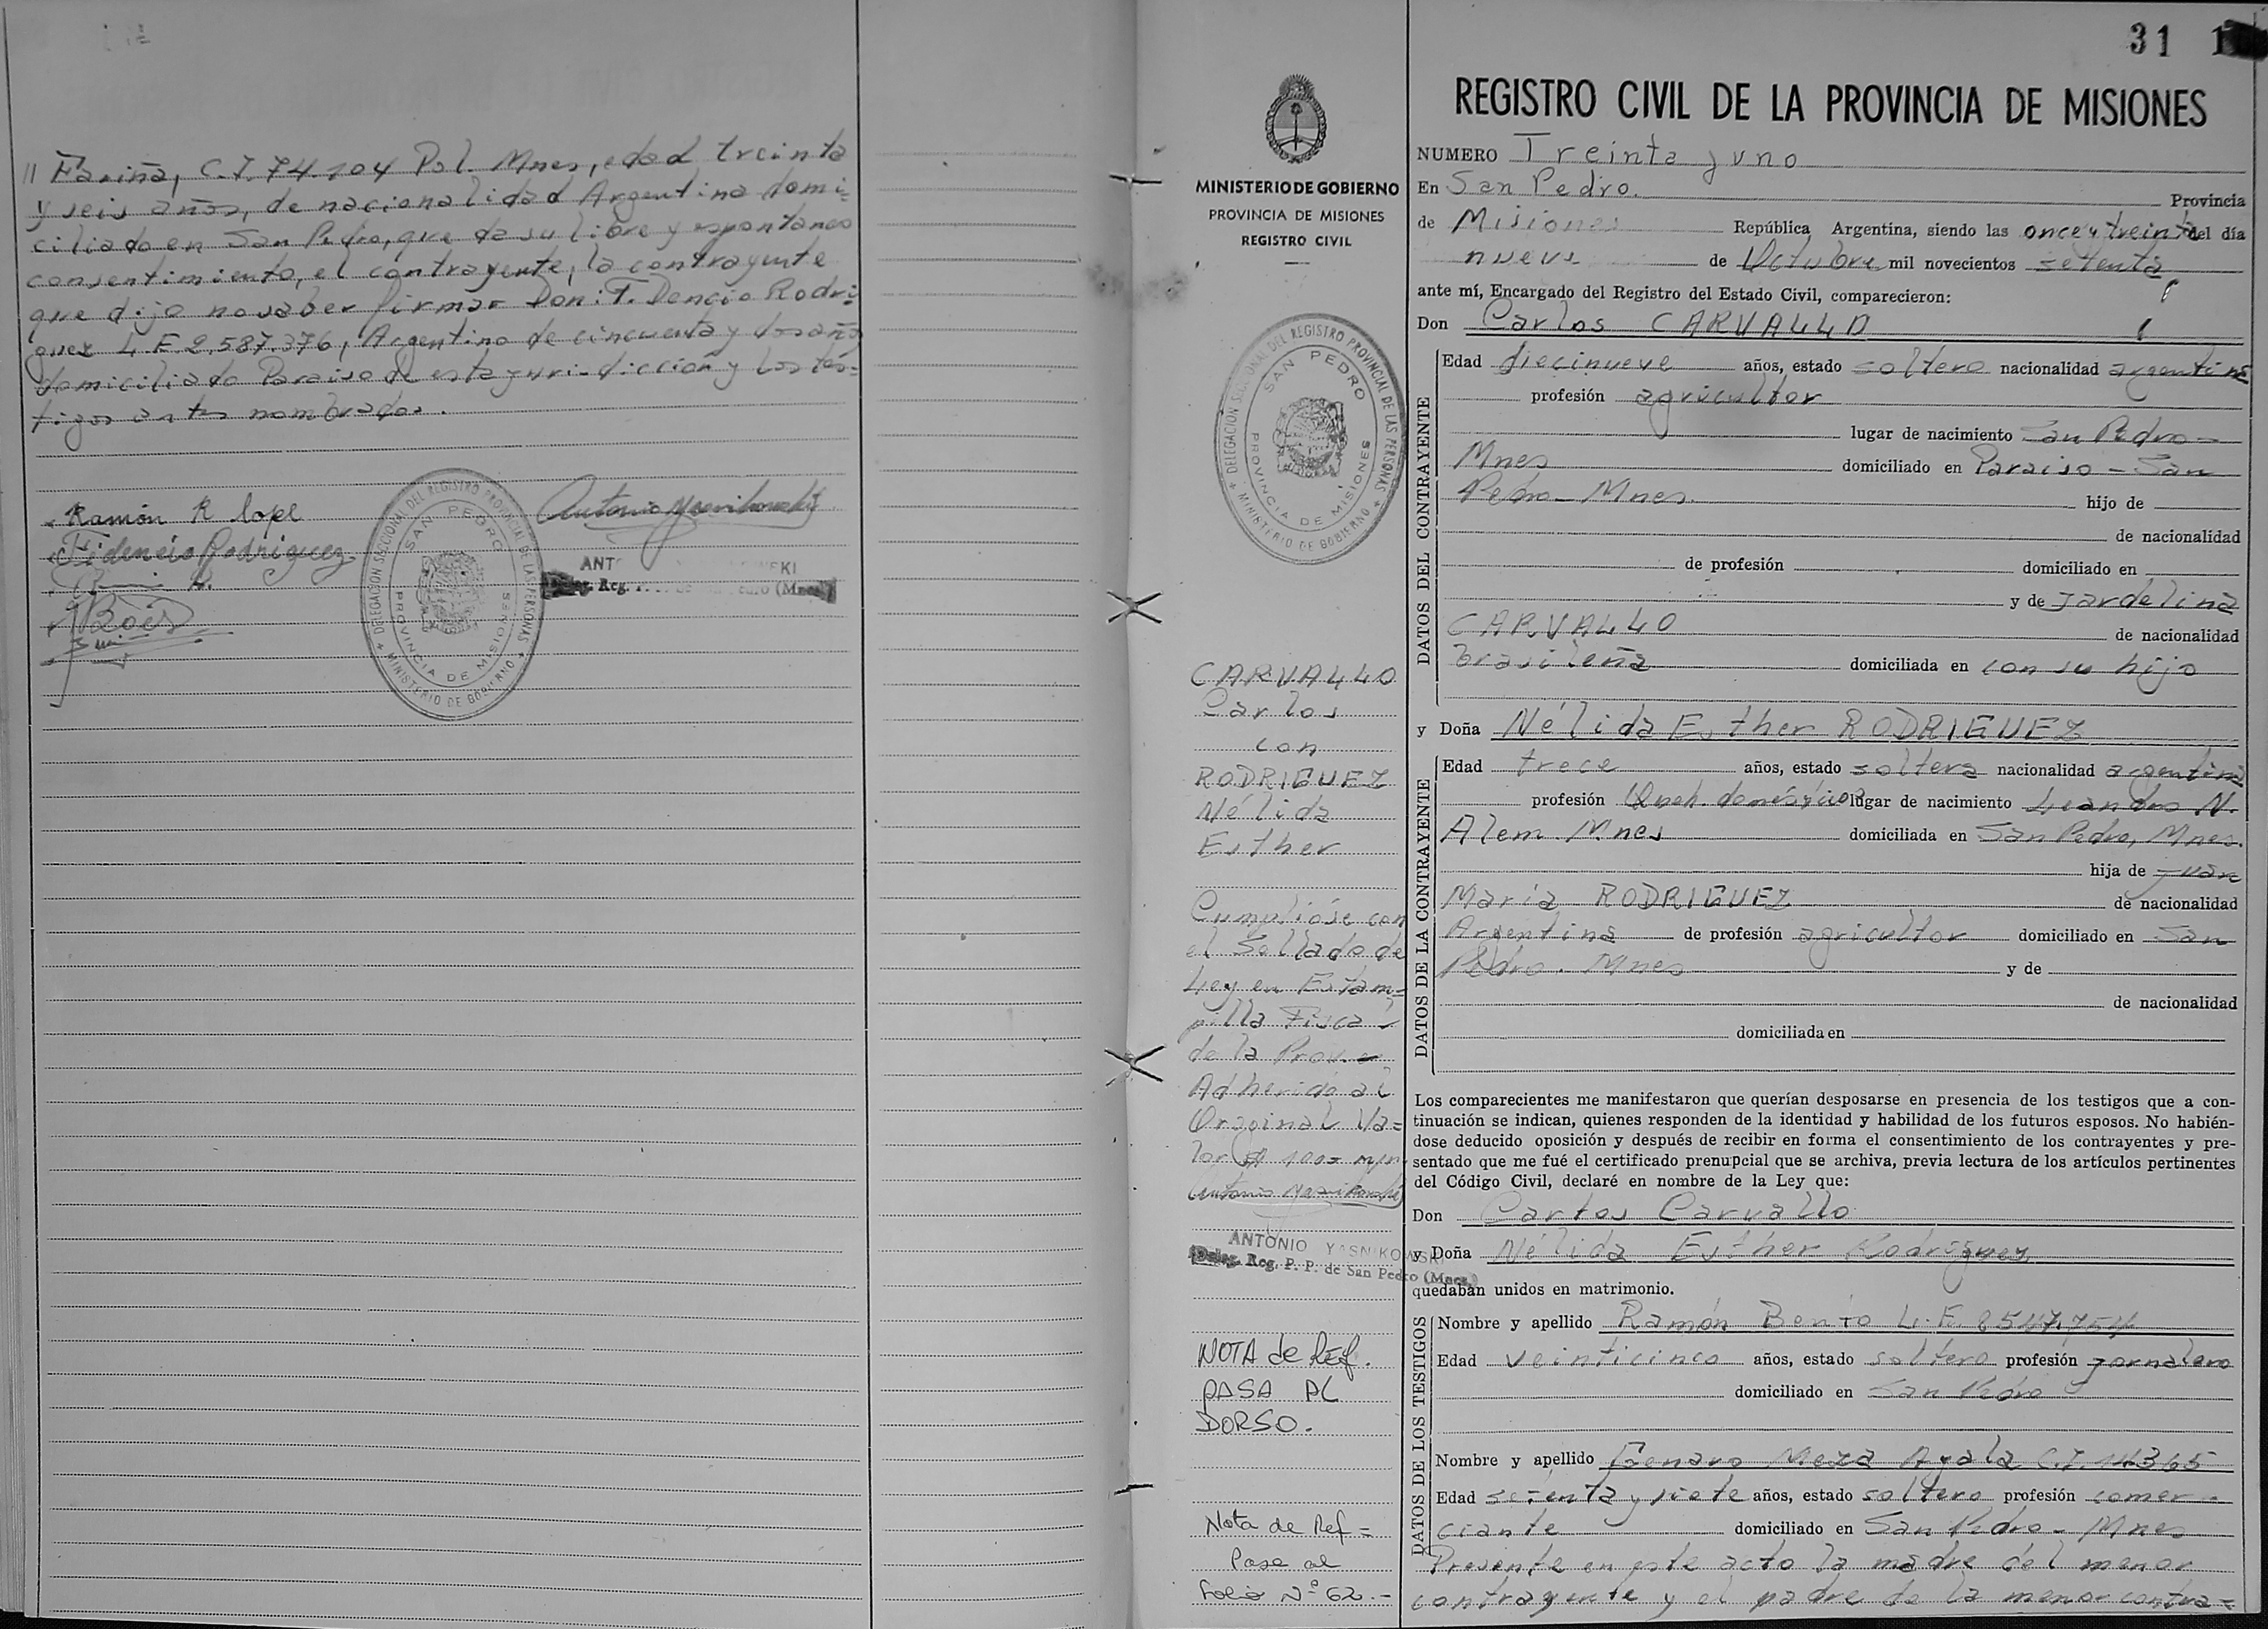 // Fariña, C.I. 74.104 Pol. Mnes, edad treinta
y seis años, de nacionalidad Argentina domi-
ciliado en San Pedro, que da su libre y espontaneo
consentimiento, el contrayente, la contrayente
que dijo no saber firmar Don: F. Dencio Rodri
guez L.E. 2.587.376, Argentino de cincuenta y dos años
domiciliado Paraiso de esta yuri-dicción y los tes=
tigos antes nombrados.
Ramón R lope
Fidencio Rodriguez
DELEGACION SECCIONAL DEL REGISTRO PROVINCIAL DE LAS PERSONAS
SAN PEDRO
PROVINCIA DE MISIONES
MINISTERIO DE GOBIERNO
31
MINISTERIO DE GOBIERNO
PROVINCIA DE MISIONES
REGISTRO CIVIL
DELEGACION SECCIONAL DEL REGISTRO PROVINCIAL DE LAS PERSONAS
SAN PEDRO
PROVINCIA DE MISIONES
MINISTERIO DE GOBIERNO
CARVALLO
Carlos
con
RODRIGUEZ
Nélida
Esther
Cumplióse con
el Sellado de
Ley en Estam=
pilla Fiscal
de la Prov.
Adherido al
Original Va=
lor $ 100= m/n
ANTONIO YASNIKOWSKI
Deleg. Reg. P. P. de San Pedro (Mnes.)
NOTA de Ref.
PASA AL
DORSO.
Nota de Ref =
Pasa al
Folio Nº 62.-
REGISTRO CIVIL DE LA PROVINCIA DE MISIONES
NUMERO Treinta y uno
En San Pedro. Provincia
de Misiones República Argentina, siendo las once y treinta del día
nueve de Octubre mil novecientos setenta
ante mí, Encargado del Registro del Estado Civil, comparecieron:
Don Carlos CARVALLO
DATOS DEL CONTRAYENTE
Edad diecinueve años, estado soltero nacionalidad argentina
profesión agricultor
lugar de nacimiento San Pedro-
Mnes domiciliado en Paraiso - San
Pedro - Mnes. hijo de
de nacionalidad
de profesión domiciliado en
y de Jardelina
CARVALLO de nacionalidad
brasileña domiciliada en con su hijo
y Doña Nélida Esther RODRIGUEZ
DATOS DE LA CONTRAYENTE
Edad trece años, estado soltera nacionalidad argentina
profesión Queh. domésticos lugar de nacimiento Leandro N.
Alem. Mnes domiciliada en San Pedro, Mnes.
hija de Juan
María RODRIGUEZ de nacionalidad
Argentina de profesión agricultor domiciliado en San
Pedro. Mnes y de
de nacionalidad
domiciliada en
Los comparecientes me manifestaron que querían desposarse en presencia de los testigos que a con-
tinuación se indican, quienes responden de la identidad y habilidad de los futuros esposos. No habién-
dose deducido oposición y después de recibir en forma el consentimiento de los contrayentes y pre-
sentado que me fué el certificado prenupcial que se archiva, previa lectura de los artículos pertinentes
del Código Civil, declaré en nombre de la Ley que:
Don Carlos Carvallo
y Doña Nélida Esther Rodriguez
quedaban unidos en matrimonio.
DATOS DE LOS TESTIGOS
Nombre y apellido Ramón Benito L.E. 8547.754
Edad veinticinco años, estado soltero profesión jornalero
domiciliado en San Pedro
Nombre y apellido Genaro Meza Ayala C.I. 14365
Edad setenta y siete años, estado soltero profesión comer-
ciante domiciliado en San Pedro - Mnes
Presente en este acto la madre del menor
contrayente y el padre de la menor contra=